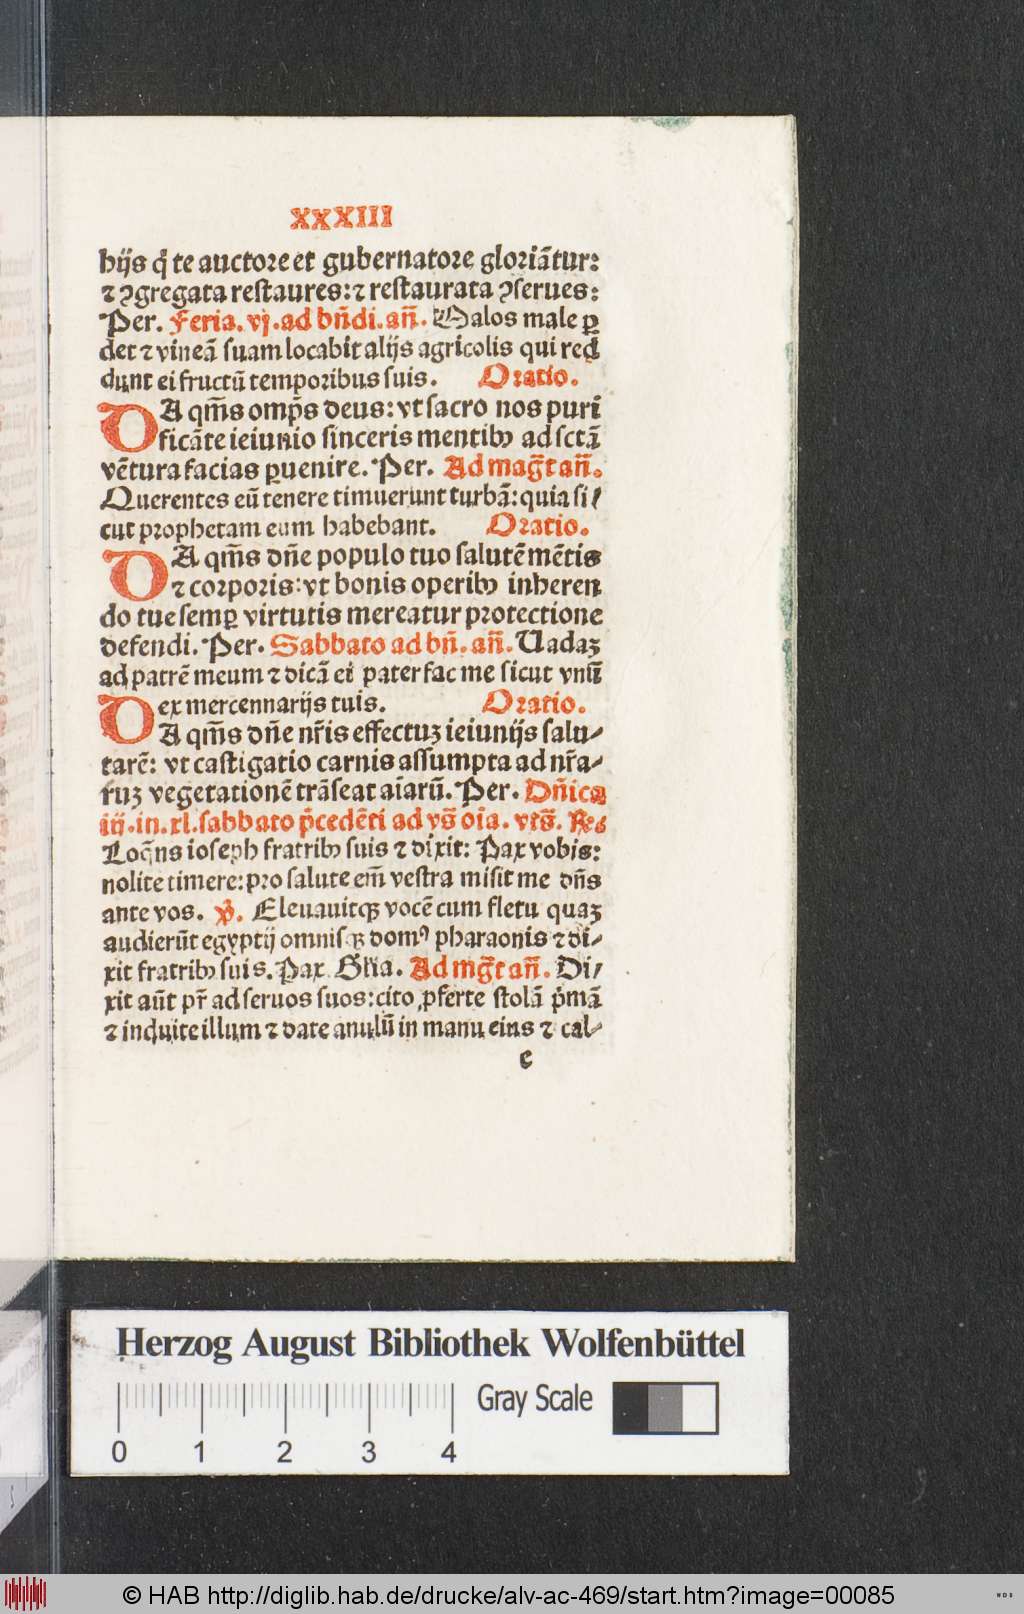 XXXIII
bijs q̄ te auctore et gubernatore gloriãtur:
⁊ ꝯgregata restaures: ⁊ restaurata ꝯserues:
Per. Feria. vj. ad bñdi. añ. Malos male ꝑ
det ⁊ vineã suam locabit alijs agricolis qui red
dunt ei fructũ temporibus suis. Oratio.
DA qm̃s omp̃s deus: vt sacro nos puri
ficãte ieiunio sinceris mentibꝫ ad sctã
vẽtura facias ꝑuenire. Per. Ad mag̃t añ.
Querentes eũ tenere timuerunt turbã: quia si/
cut prophetam eum habebant. Oratio.
DA qm̃s dñe populo tuo salutẽ mẽtis
⁊ corporis: vt bonis operibꝫ inheren
do tue semꝑ virtutis mereatur protectione
defendi. Per. Sabbato ad bñ. añ. Uadaꝫ
ad patrẽ meum ⁊ dicã ei pater fac me sicut vnũ
ex mercennarijs tuis. Oratio.
DA qm̃s dñe nr̃is effectuꝫ ieiunijs salu/
tarẽ: vt castigatio carnis assumpta ad nr̃a/
ruꝫ vegetationẽ trãseat aĩarũ. Per. Dñica
iij. in. xl. sabbato p̃cedẽti ad vs̃ oĩa. vts̃. Res
Loq̃ns ioseph fratribꝫ suis ⁊ dixit: Pax vobis:
nolite timere: pro salute em̃ vestra misit me dñs
ante vos. ꝟ. Eleuauitqꝫ vocẽ cum fletu quaꝫ
audierũt egyptij omnisqꝫ domꝰ pharaonis ⁊ di/
xit fratribꝫ suis. Pax Gl̃ia. Ad mg̃t añ. Di/
xit aũt pr̃ ad seruos suos: cito ꝓferte stolã p̃mã
⁊ induite illum ⁊ date anulũ in manu eius ⁊ cal/
e
Herzog August Bibliothek Wolfenbüttel
Gray Scale
0 1 2 3 4
© HAB http://diglib.hab.de/drucke/alv-ac-469/start.htm?image=00085